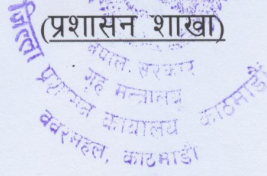 (प्रशासन शाखा)
नेपाल सरकार
गृह मन्त्रालय
जिल्ला प्रशासन कार्यालय काठमाडौं
बबरमहल, काठमाडौं